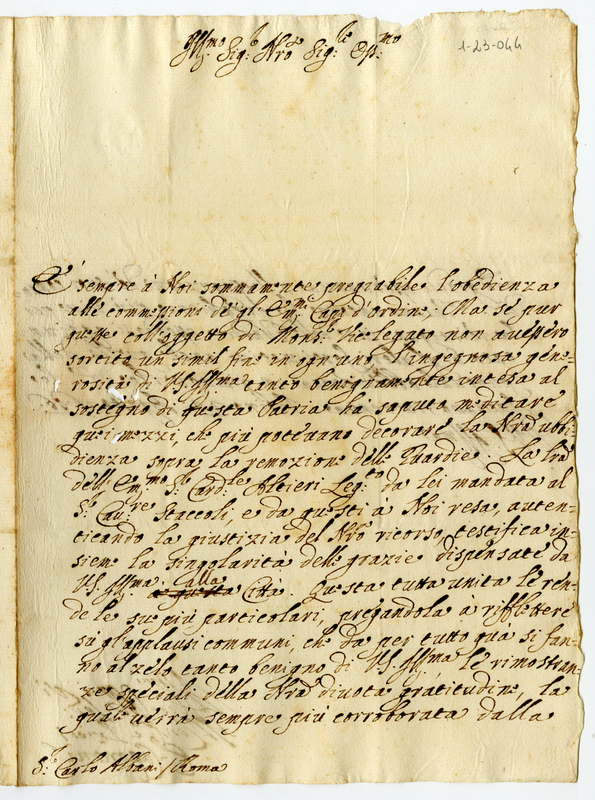 Ill.mo Sig.r Nro Sig.re Oss.mo
1-23-044
È sempre à Noi sommamente pregiabile l'obedienza
alle commessioni de gl'Em.mi Capi d'ordine; Ma se pur
queste coll'oggetto di Mons.r Vicelegato non avessero
sortito un simil fine in ogn'uno l'ingegnosa gene-
rosità di VS. Ill.ma tanto benignamente intesa al
sostegno di questa Patria hà saputo meditare
quei mezzi, che più potevano decorare la Nrã ubbi-
dienza sopra la remozione delle Guardie. La lrã
dell'Em.mo S.r Card.le Altieri Leg.to da lei mandata al
S.r Cau.re Staccoli, e da questi à Noi resa, auten-
ticando la giustizia del Nro ricorso, testifica in-
sieme la singolarità delle grazie dispensate da
VS. Ill.ma alla Città. Questa tutta unita le ren-
de le sue più particolari, pregandola à riflettere
sù gl'applausi communi, che da per tutto quà si fan-
no al zelo tanto benigno di VS. Ill.ma le rimostran-
ze speciali della Nrã divota gratitudine, la
quale verrà sempre più corroborata dalla
S.r Carlo Albani / Roma